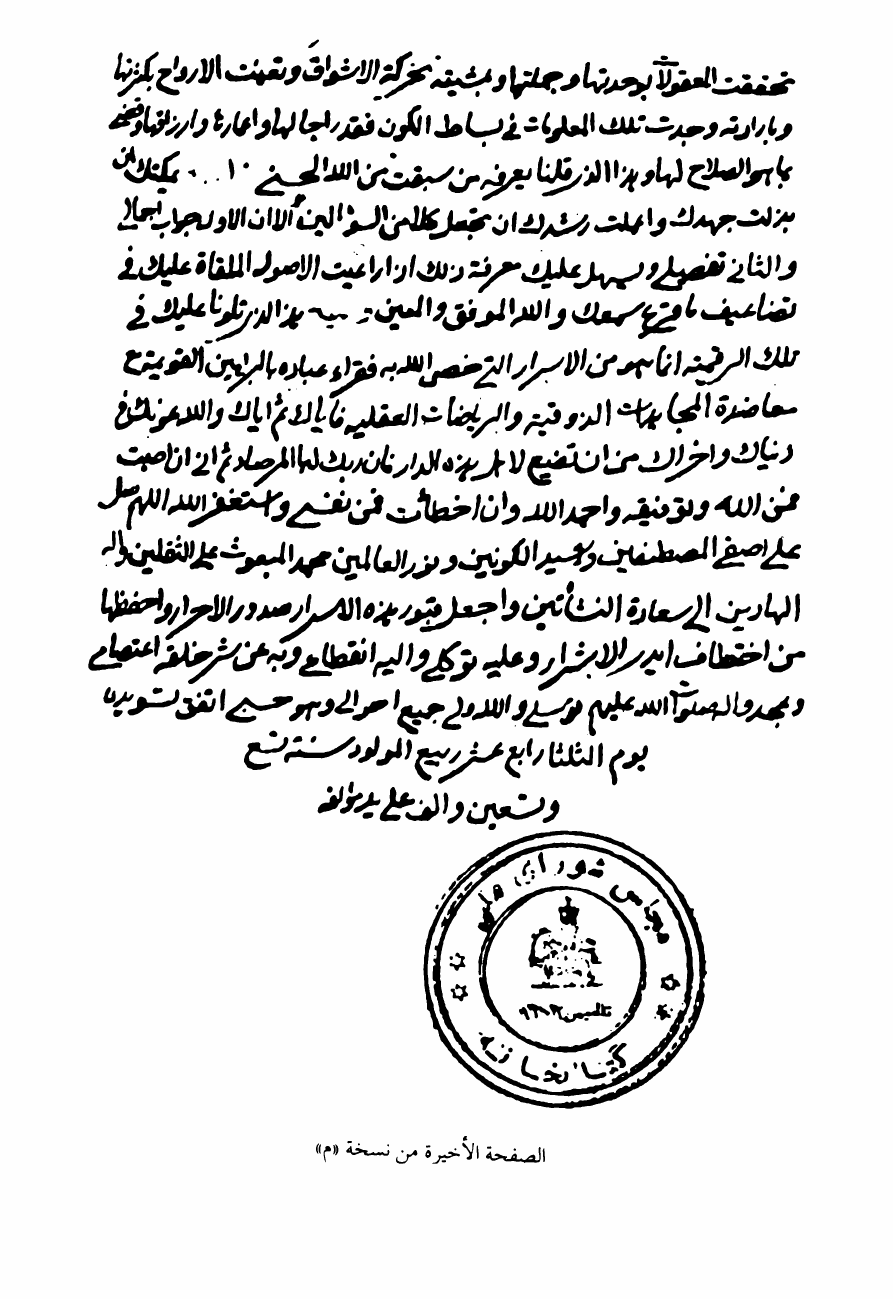 تحققت العقول بوحدتها وجملتها وبمشيته بحركة الاشواق وتعينت الارواح بكثرتها
وبارادته وجدت تلك المعلومات في بساط الكون فقدر اجالها واعمارها وارزاقها وقضى
بما هو الصلاح لها وهذا الذي قلنا يعرفه من سبقت من الله الحسنى ١٠٠٠ يمكنك ان
بذلت جهدك واعملت رشدك ان تجعل كلا من السؤالين الا ان الاول جواب اجمالي
والثاني تفصيلي ويسهل عليك معرفة ذلك ان راعيت الاصول الملقاة عليك في
تضاعيف ما قرع سمعك والله الموفق والمعين هذا الذي تلونا عليك في
تلك الرقيمة انما هو من الاسرار التي خص الله به فقراء عباده بالبراهين القويمة مع
معاضدة المجاهدات الذوقية والرياضات العقلية فاياك ثم اياك والله عونك في
دنياك واخراك من ان تضيع لاهل هذه الدار فان ربك لها المرصاد ثم اني ان اصبت
فمن الله وتوفيقه واحمد الله وان اخطأت فمن نفسي واستغفر الله اللهم صل
على اصفى المصطفين وسيد الكونين ونور العالمين محمد المبعوث على الثقلين واله
الهادين الى سعادة النشأتين واجعل قبور هذه الاسرار صدور الاحرار واحفظها
من اختطاف ايدي الاشرار وعليه توكلي واليه انقطاعي وبه عن شر خلقه اعتصامي
وبمحمد واله صلوات الله عليهم توسلي والله ولي جميع احوالي وهو حسبي اتفق تسويده
يوم الثلثا رابع عشر ربيع المولود سنة تسع
وتسعين والف على يد مؤلفه
مجلس شورای ملی
تاسيس ١٣٠٢
کتابخانه
الصفحة الأخيرة من نسخة «م»